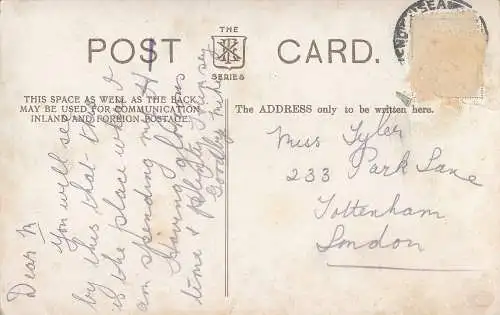 POST CARD.
THE
SERIES
THIS SPACE AS WELL AS THE BACK
MAY BE USED FOR COMMUNICATION
INLAND AND FOREIGN POSTAGE.
The ADDRESS only to be written here.
Dear N
You will see
by this that this
is the place where I
am spending my H
Having glorious
time & plenty
Goodbye
Miss Tyler
233 Park Lane
Tottenham
London